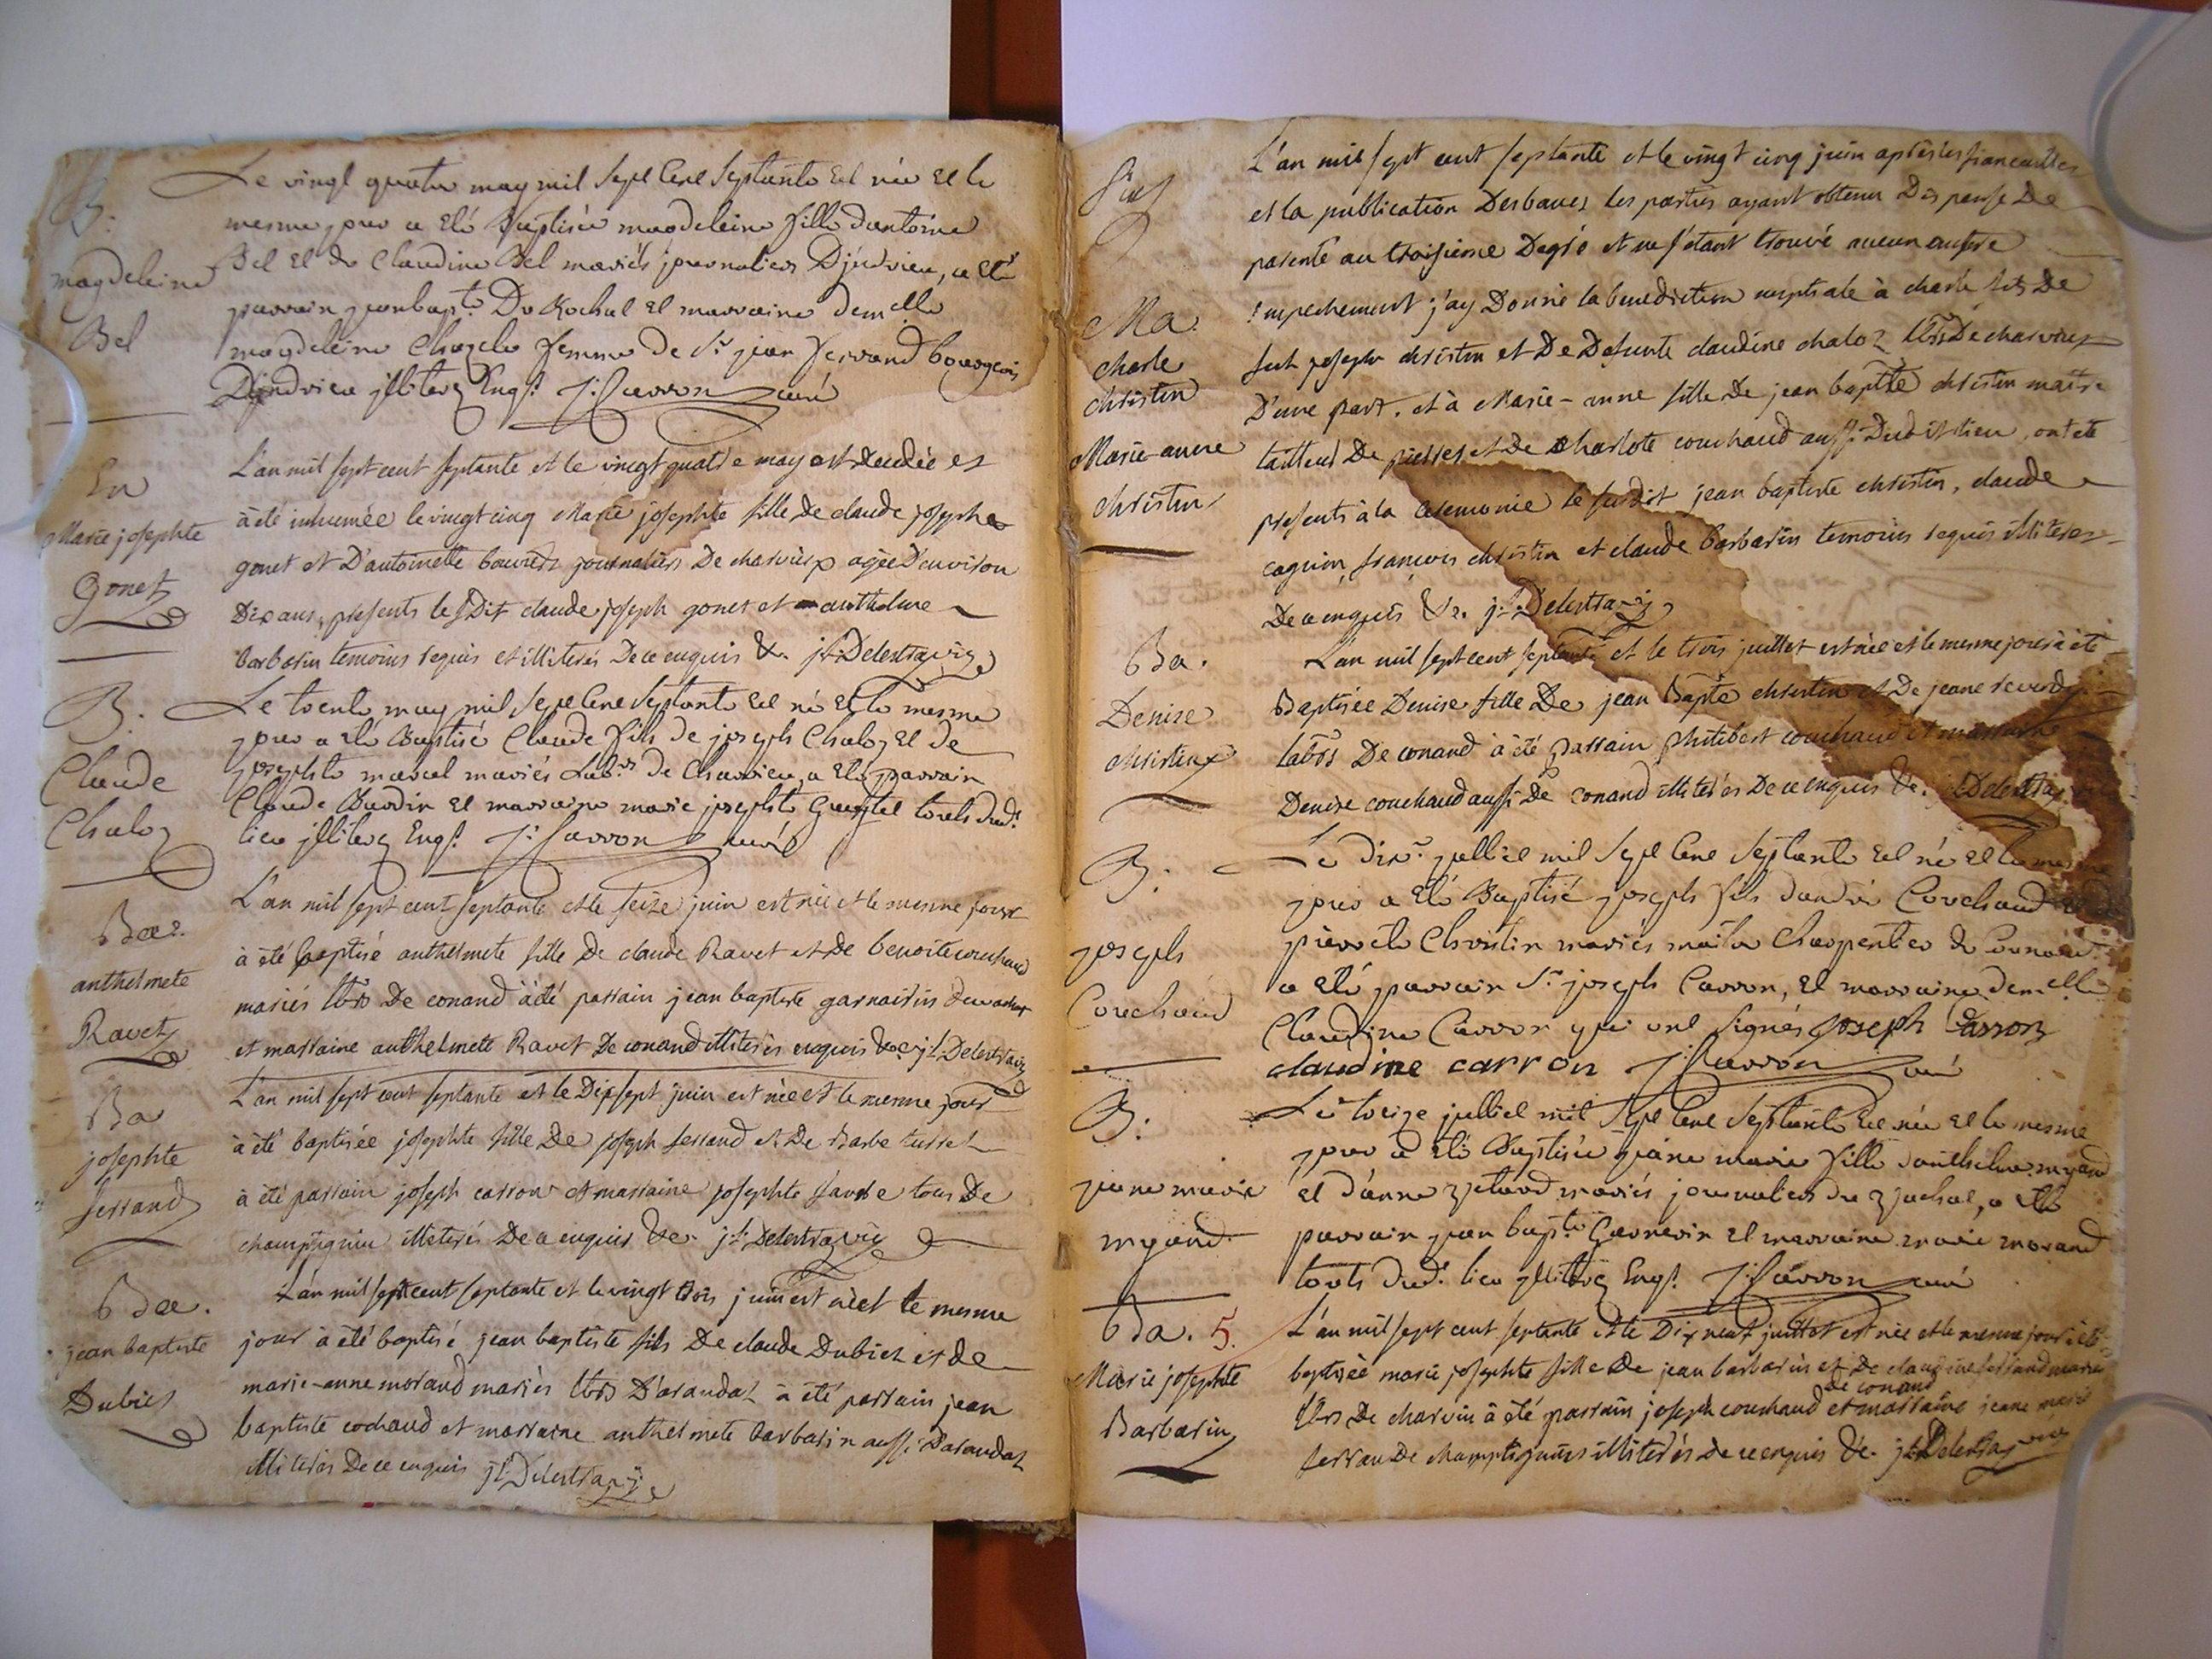 B.
magdeleine
Bel
Le vingt quatre may mil sept cent septante est née et le
mesme jour a eté baptisée magdeleine fille dantoine
Bel et de Claudine Bel mariés journaliers Djndrieu, a eté
parrain jean bapte. Du Rochat et marraine demelle
magdeleine Chazele femme de Sr jean ferrand bourgeois
Djndrieu illiterez Enqs. J: Carron curé
En
Marie josephte
Gonet
L'an mil sept cent septante et le vingt quatre may est decedée et
à été inhumée le vingt cinq Marie josephte fille de claude joseph
gonet et D'antoinette bouvier journaliers De charvieux agée D'environ
Dix ans, presents le sdit claude joseph gonet et anthelme
barbarin temoins requis et illiterés De ce enquis &. jh: Delestraz vic
B.
Claude
Chaloz
Le trente may mil sept cent septante est né et le mesme
jour a eté Baptisé Claude fils de joseph Chaloz et de
josephte marcel mariés Labrs de Charvieu, a eté parrain
Claude Burdin et marraine marie josephte touts dud.
lieu jlliterez Enqs. J: Carron curé
Bae.
anthelmete
Ravet
L'an mil sept cent septante et le seize juin est née et le mesme jour
à été baptisé anthelmete fille De claude Ravet et De benoite couchaud
mariés lbrs De conand à été parrain jean baptiste garnairin
et marraine anthelmete Ravet De conand illiterés enquis &c jh. Delestraz
Ba
josephte
ferrand
L'an mil sept cent septante et le Dix sept juin est née et le mesme jour
à été baptisée josephte fille De joseph ferrand et De Barbe
à été parrain joseph carron et marraine josephte tous De
illiterés De ce enquis &c. jh: Delestraz vic
Bae.
jean baptiste
Dubiez
L'an mil sept cent septante et le vingt trois juin est né et le mesme
jour à été baptisé jean baptiste fils De claude Dubiez et de
marie-anne morand mariés lbrs D'arandaz à été parrain jean
baptiste cochaud et marraine anthelmete barbarin aussi D'arandaz
illiterés De ce enquis jh: Delestraz
Ma.
charle
christin
Marie-anne
christin
L'an mil sept cent septante et le vingt cinq juin après les fiancailles
et la publication Des bancs les parties ayant obtenu Dispense De
parenté au troisieme Degré et ne s'etant trouvé aucun autre
empechement j'ay Donné la benediction nuptiale à charle fils De
feu joseph christin et De Defunte claudine chaloz lbrs De charvieux
D'une part. et à Marie-anne fille De jean baptiste christin maitre
tailleur De pierres et De charlote couchaud aussi Dudit lieu, ont eté
presents à la ceremonie le susdit jean baptiste christin, claude
cognin, françois christin et claude barbarin temoins requis illiterez
De ce enquis &c. jh: Delestraz
Ba.
Denise
christin
L'an mil sept cent septante et le trois juillet est née et le mesme jour à été
Baptisée Denise fille De jean Bapte christin et De jeane
labrs De conand à été parrain philibert couchaud et marraine
Denise couchaud aussi De conand illiterés De ce enquis &c. Delestraz
B.
joseph
Couchaud
Le dixe. jullliet mil sept cent septante est né et le mesme
jour a eté Baptisé joseph fils dandré Couchaud et de
pierrete Christin mariés maitre Charpentier de Conand.
a eté parrain Sr. joseph Carron, et marraine demelle
Claudine Carron qui ont signés joseph Carron
claudine carron J: Carron curé
B:
jeane marie
myand
Le treize jullliet mil sept cent septante est née et le mesme
jour a eté Baptisée jeane marie fille danthelme myand
et d'anne mariés journaliers du, a eté
parrain jean bapte. Garnerin et marraine marie morand
touts dud. lieu jlliterez Enqs. J: Carron curé
Ba. 5.
Marie josephte
Barbarin
L'an mil sept cent septante et le Dix neuf juillet est née et le mesme jour à été
baptisée marie josephte fille De jean barbarin et De claudine ferrand mariés
de conand
lbrs De charvieu à été parrain joseph couchaud et marraine jeane marie
illiterés de ce enquis &c. jh. Delestraz